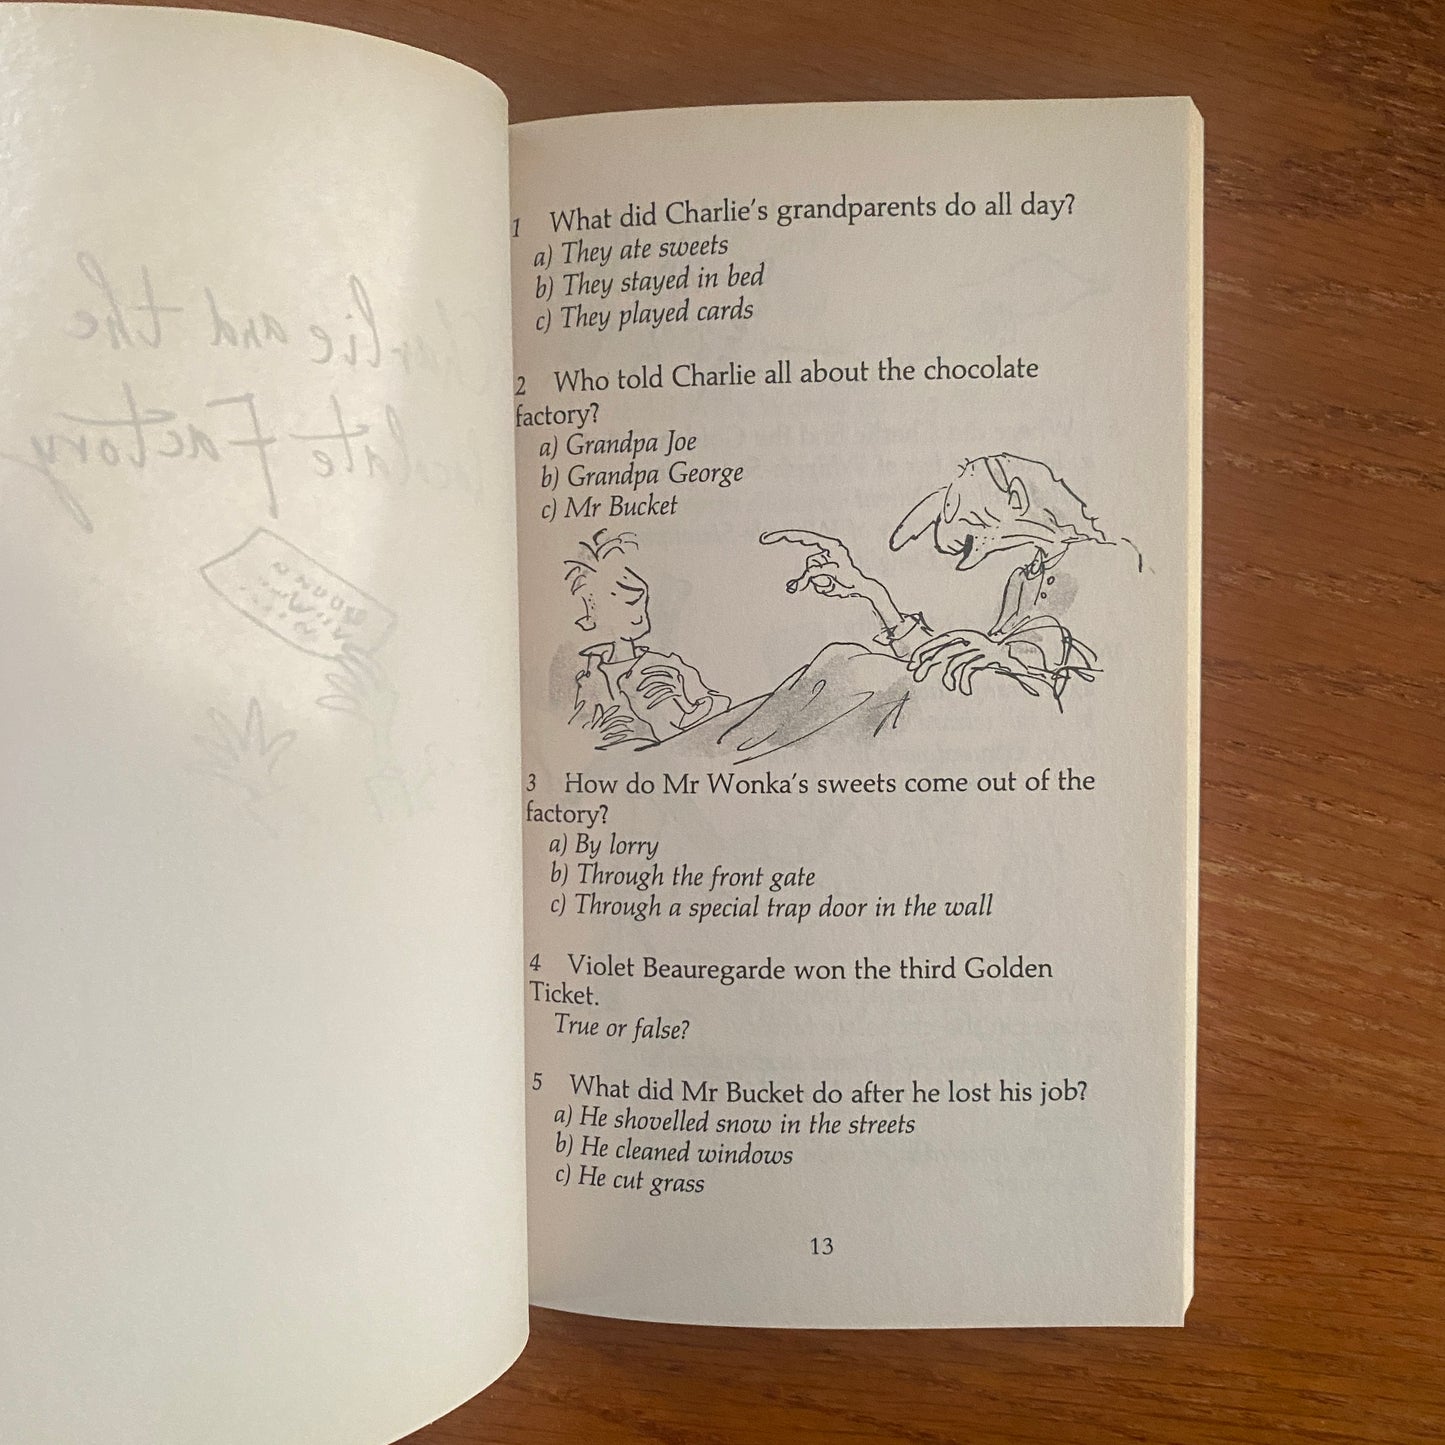 1 What did Charlie's grandparents do all day?
a) They ate sweets
b) They stayed in bed
c) They played cards
2 Who told Charlie all about the chocolate
factory?
a) Grandpa Joe
b) Grandpa George
c) Mr Bucket
3 How do Mr Wonka's sweets come out of the
factory?
a) By lorry
b) Through the front gate
c) Through a special trap door in the wall
4 Violet Beauregarde won the third Golden
Ticket.
True or false?
5 What did Mr Bucket do after he lost his job?
a) He shovelled snow in the streets
b) He cleaned windows
c) He cut grass
13